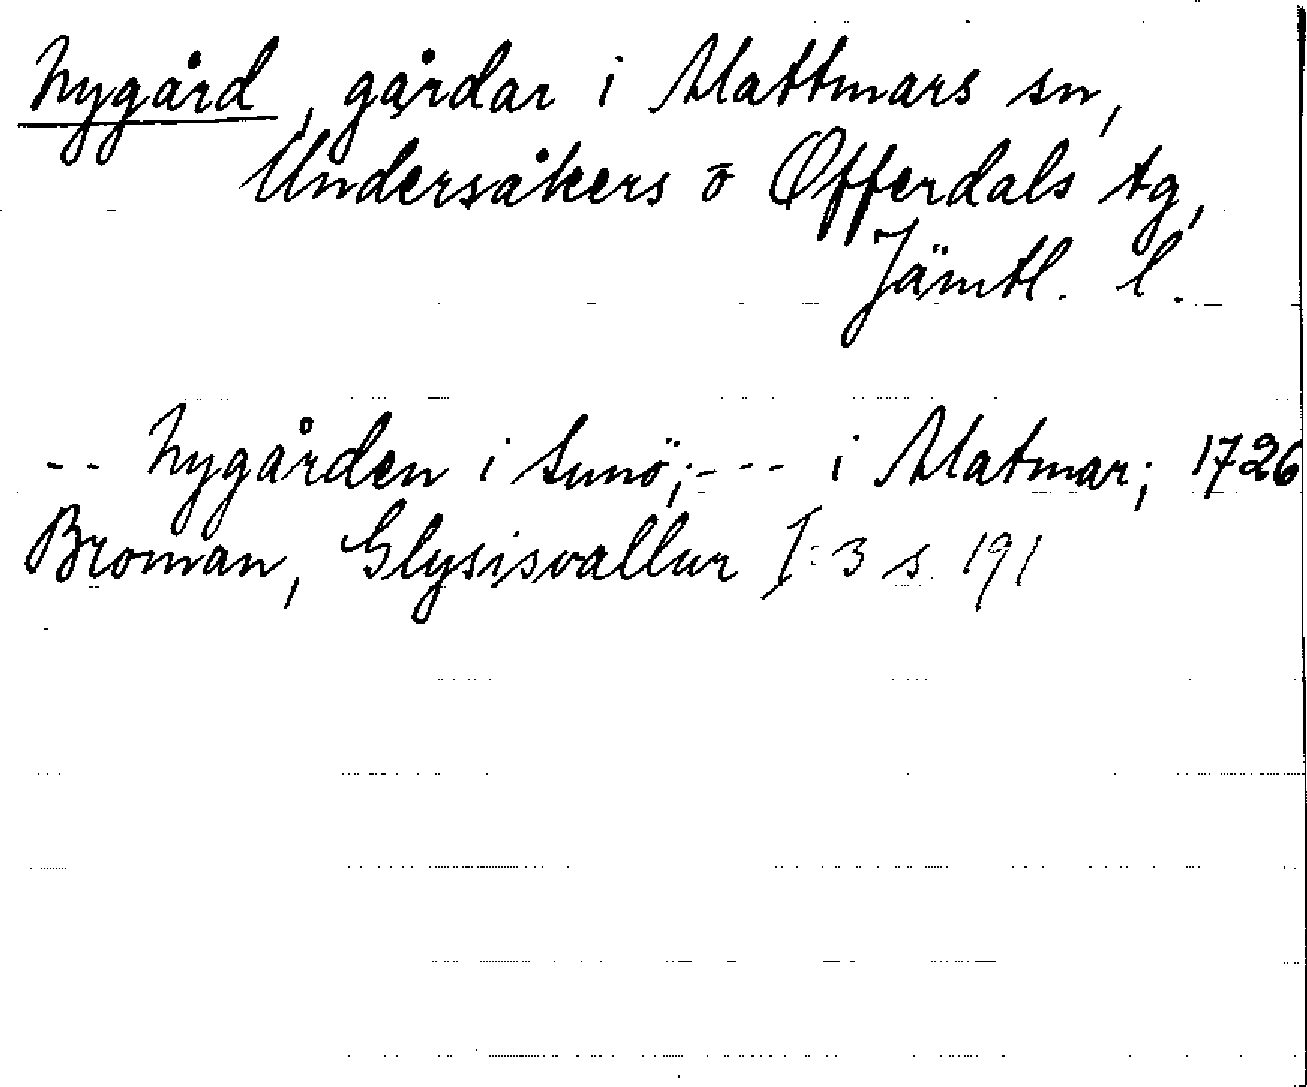 Nygård, gårdar i Mattmars sn,
Undersåkers o Offerdals tg,
Jämtl. l.
-- Nygården i Sunö; --- i Matmar; 1726
Broman, Glysisvallur I:3 s. 191